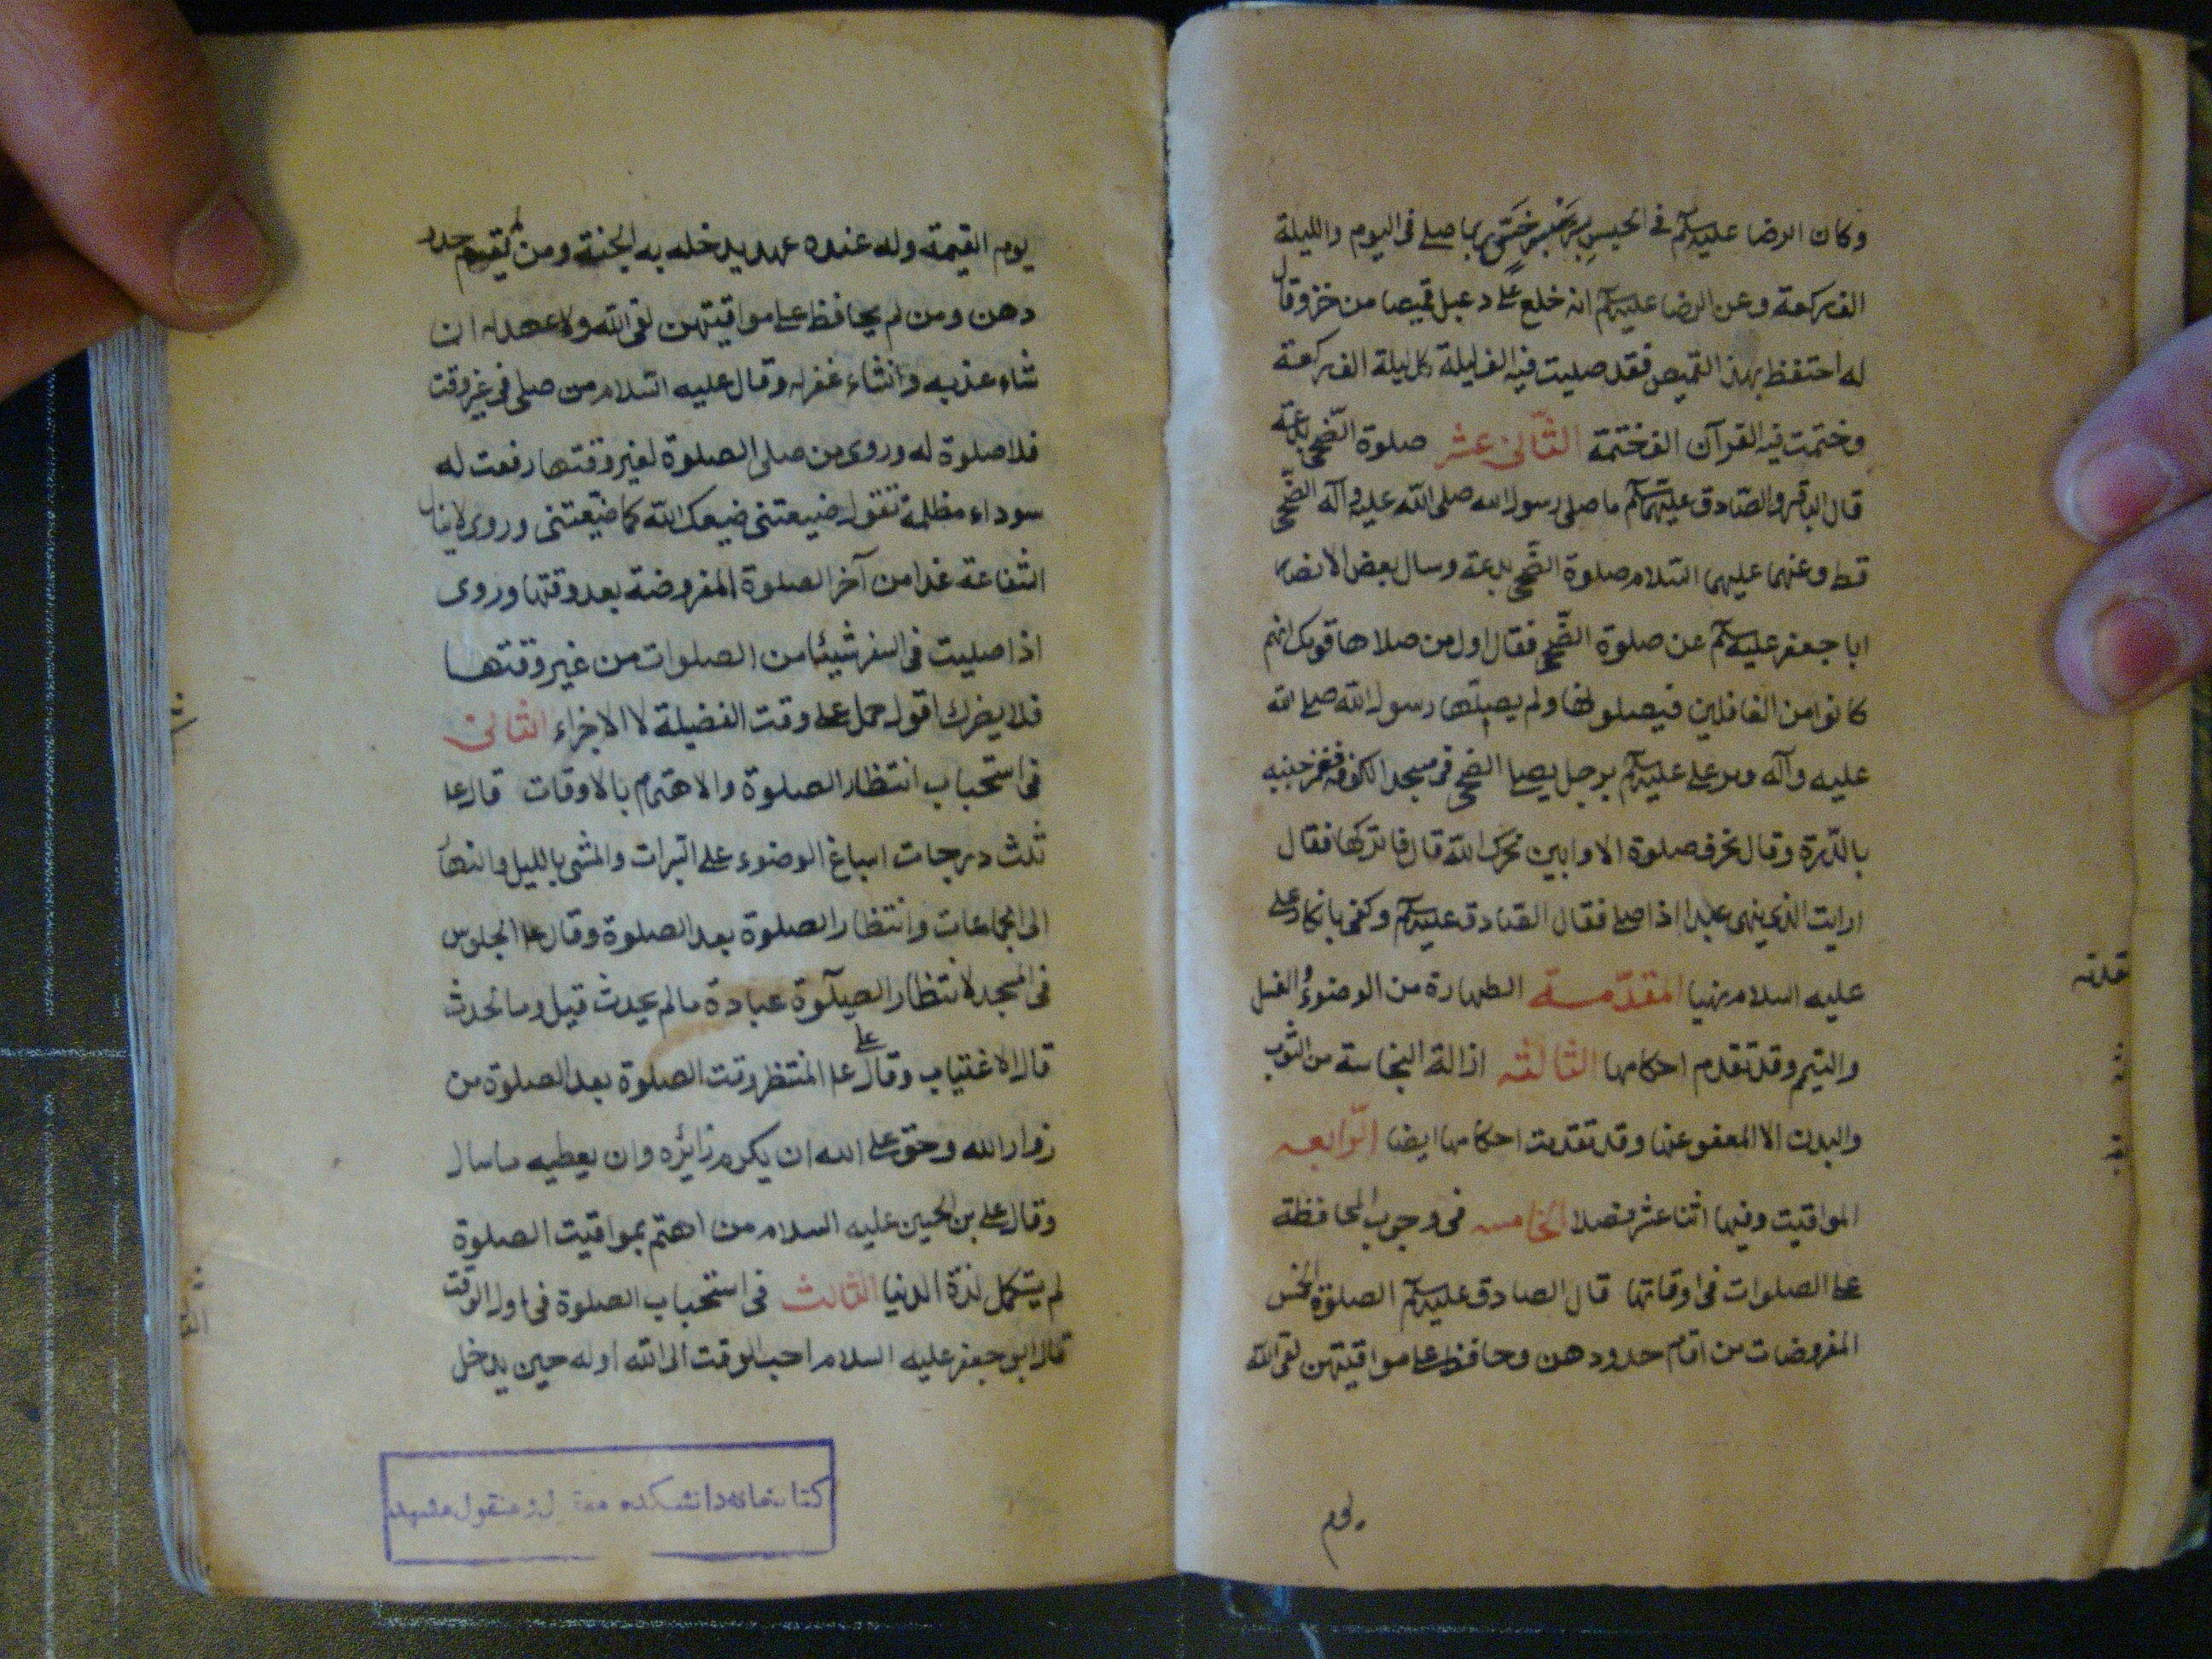 وكان الرضا عليه السلم في الحبس بسرخس ربما صلى فى اليوم والليلة
الف ركعة وعن الرضا عليه السلم انه خلع على دعبل قميصا من خز وقال
له احتفظ بهذا القميص فقد صليت فيه الف ليلة كل ليلة الف ركعة
وختمت فيه القرآن الف ختمة الثانى عشر صلوة الضحى بدعة
قال الباقر والصادق عليهما السلم ما صلى رسول الله صلى الله عليه وآله الضحى
قط وعنهما عليهما السلام صلوة الضحى بدعة وسال بعض الانصار
ابا جعفر عليه السلم عن صلوة الضحى فقال اول من صلاها قومك انهم
كانوا من الغافلين فيصلونها ولم يصلها رسول الله صلى الله
عليه وآله ومر على عليه السلم برجل يصلى الضحى فى مسجد الكوفة فغمز جنبه
بالدرة وقال نحرت صلوة الاوابين نحرك الله قال فاتركها فقال
ارايت الذى ينهى عبدا اذا صلى فقال الصادق عليه السلم وكفى بانكار على
عليه السلام نهيا المقدمة الطهارة من الوضوء والغسل
والتيمم وقد تقدم احكامها الثالثة ازالة النجاسة من الثوب
والبدن الا المعفو عنها وقد تقدمت احكامها ايضا الرابعة
المواقيت وفيها اثنا عشر فصلا الخامسة فى وجوب المحافظة
على الصلوات فى اوقاتها قال الصادق عليه السلم الصلوة الخمس
المفروضات من اقام حدودهن وحافظ على مواقيتهن لقى الله
يوم
يوم القيمة وله عنده عهد يدخله به الجنة ومن لم يقم حدو
دهن ومن لم يحافظ على مواقيتهن لقى الله ولا عهد له ان
شاء عذبه وان شاء غفر له وقال عليه السلام من صلى فى غير وقت
فلا صلوة له وروى من صلى الصلوة لغير وقتها رفعت له
سوداء مظلمة تقول ضيعتنى ضيعك الله كما ضيعتنى وروى لا ينال
الشفاعة غدا من آخر الصلوة المفروضة بعد وقتها وروى
اذا صليت فى السفر شيئا من الصلوات من غير وقتها
فلا يضرك اقول حمل على وقت الفضيلة لا الاجزاء الثانى
فى استحباب انتظار الصلوة والاهتمام بالاوقات قال ع
ثلث درجات اسباغ الوضوء على السبرات والمشى بالليل والنهار
الى الجماعات وانتظار الصلوة بعد الصلوة وقال ع الجلوس
فى المسجد لانتظار الصلوة عبادة ما لم يحدث قيل وما الحدث
قال الاغتياب وقال على ع المنتظر وقت الصلوة بعد الصلوة من
زوار الله وحق على الله ان يكرم زائره وان يعطيه ما سال
وقال على بن الحسين عليه السلام من اهتم بمواقيت الصلوة
لم يستكمل لذة الدنيا الثالث فى استحباب الصلوة فى اول الوقت
قال ابو جعفر عليه السلام احب الوقت الى الله اوله حين يدخل
كتابخانه دانشكده معقول و منقول مشهد